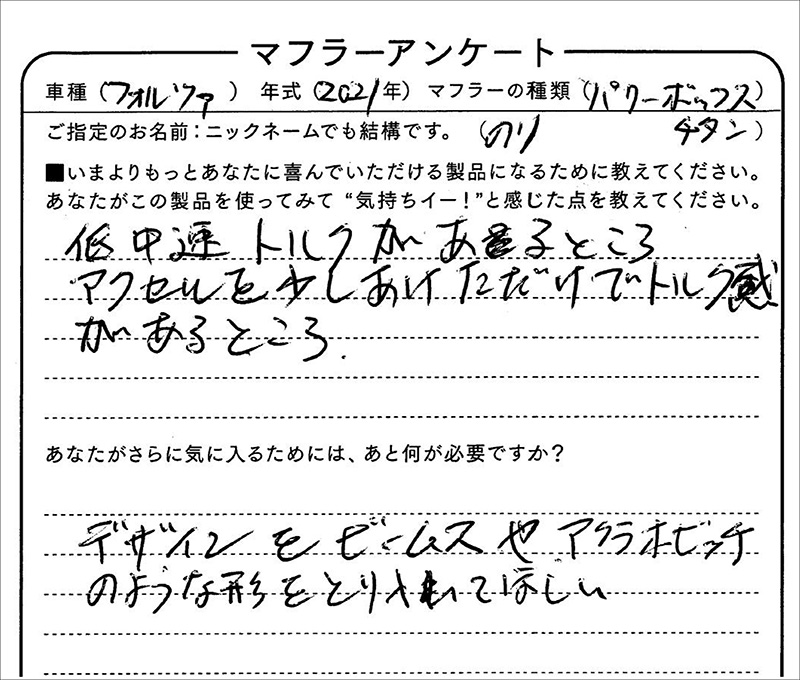 マフラーアンケート
車種（フォルツァ） 年式（2021年）マフラーの種類（パワーボックス）
ご指定のお名前：ニックネームでも結構です。（のり チタン）
■いまよりもっとあなたに喜んでいただける製品になるために教えてください。
あなたがこの製品を使ってみて“気持ちイー！”と感じた点を教えてください。
低中速トルクがあるところ
アクセルを少しあけただけでトルク感
があるところ.
あなたがさらに気に入るためには、あと何が必要ですか？
デザインをビームスやアクラホビッチ
のような形をとり入れてほしい